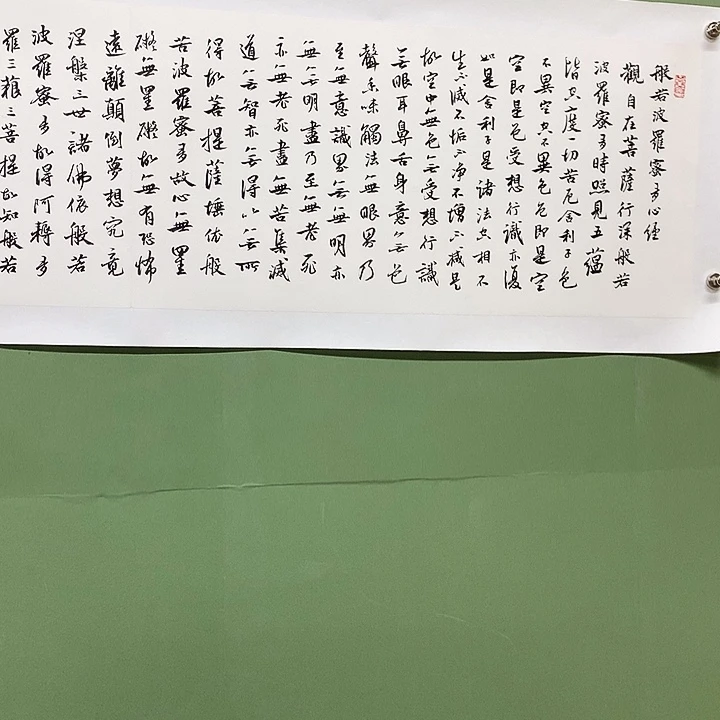 般若波羅蜜多心經
觀自在菩薩行深般若
波羅蜜多時照見五蘊
皆空度一切苦厄舍利子色
不異空空不異色色即是空
空即是色受想行識亦復
如是舍利子是諸法空相不
生不滅不垢不淨不增不減是
故空中無色無受想行識
無眼耳鼻舌身意無色
聲香味觸法無眼界乃
至無意識界無無明亦
無無明盡乃至無老死
亦無老死盡無苦集滅
道無智亦無得以無所
得故菩提薩埵依般
若波羅蜜多故心無罣
礙無罣礙故無有恐怖
遠離顛倒夢想究竟
涅槃三世諸佛依般若
波羅蜜多故得阿耨多
羅三藐三菩提故知般若